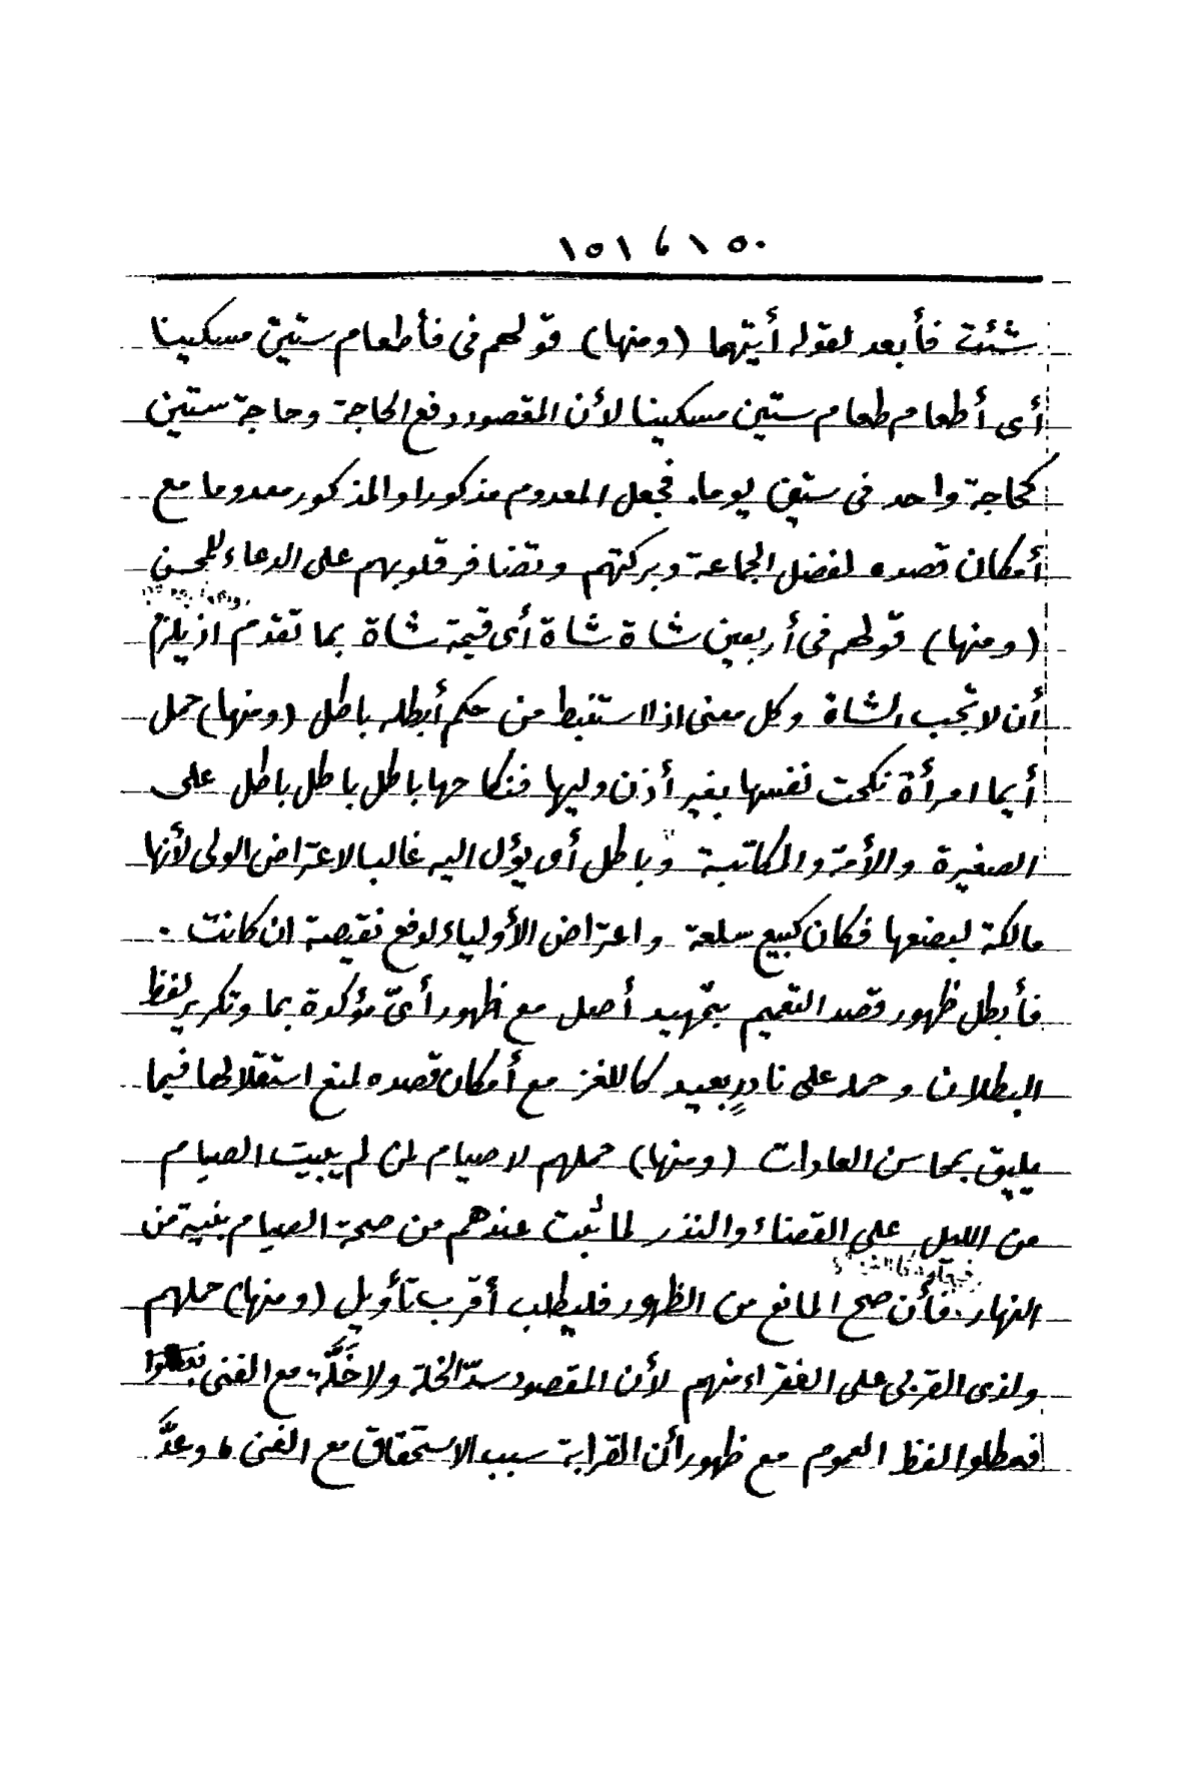 ١٥٠ ، ١٥١
شئت فأبعد لقوله أيتهما (ومنها) قولهم في فأطعام ستين مسكينا
أى أطعام طعام ستين مسكينا لأن المقصود دفع الحاجة وحاجة ستين
كحاجة واحد فى ستين يوما. فجعل المعدوم مذكورا والمذكور معدوما مع
أمكان قصده لفضل الجماعة وبركتهم وتضافر قلوبهم على الدعاء للمحسن
(ومنها) قولهم فى أربعين شاة شاة أى قيمة شاة بما تقدم اذ يلزم
أن لا تجب الشاة وكل معنى اذا استنبط من حكم أبطله باطل (ومنها) حمل
أيما امرأة نكحت نفسها بغير أذن وليها فنكاحها باطل باطل باطل على
الصغيرة والأمة والمكاتبة وباطل أى يؤل اليه غالبا لاعتراض الولى لأنها
مالكة لبضعها فكان كبيع سلعة واعتراض الأولياء لدفع نقيصة ان كانت .
فأبطل ظهور قصد التعميم بتمهيد أصل مع ظهور أىّ مؤكدة بما وتكرير لفظ
البطلان وحمله على نادرٍ بعيد كاللغز مع أمكان قصده لمنع استقلالها فيما
يليق بمحاسن العادات (ومنها) حملهم لا صيام لمن لم يبيت الصيام
من الليل على القضاء والنذر لما ثبت عندهم من صحة الصيام بنية من
النهار. فأن صح المانع من الظهور فليطلب أقرب تأويل (ومنها) حملهم
ولذى القربى على الفقراء منهم لأن المقصود سدّ الخلة ولا خَلَّة مع الغنى
فعطلوا لفظ العموم مع ظهور أن القرابة سبب الاستحقاق مع الغنى ، وعدَّ